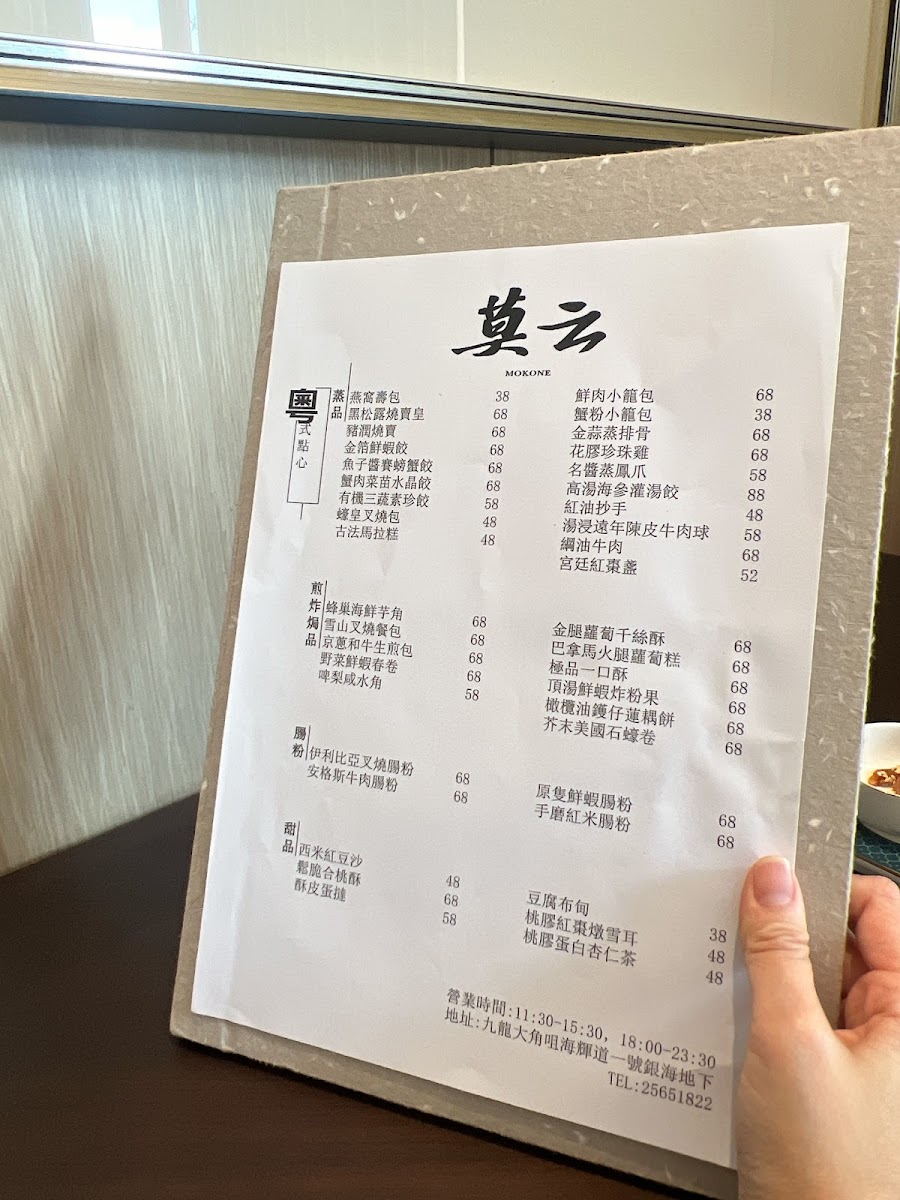 莫云
MOKONE
粵式點心
蒸品
燕窩壽包 38
黑松露燒賣皇 68
豬潤燒賣 68
金箔鮮蝦餃 68
魚子醬賽螃蟹餃 68
蟹肉菜苗水晶餃 68
有機三蔬素珍餃 58
蠔皇叉燒包 48
古法馬拉糕 48
鮮肉小籠包 68
蟹粉小籠包 38
金蒜蒸排骨 68
花膠珍珠雞 68
名醬蒸鳳爪 58
高湯海參灌湯餃 88
紅油抄手 48
湯浸遠年陳皮牛肉球 58
綱油牛肉 68
宮廷紅棗盞 52
煎炸焗品
蜂巢海鮮芋角 68
雪山叉燒餐包 68
京蔥和牛生煎包 68
野菜鮮蝦春卷 68
啤梨咸水角 58
金腿蘿蔔千絲酥 68
巴拿馬火腿蘿蔔糕 68
極品一口酥 68
頂湯鮮蝦炸粉果 68
橄欖油鑊仔蓮耦餅 68
芥末美國石蠔卷 68
腸粉
伊利比亞叉燒腸粉 68
安格斯牛肉腸粉 68
原隻鮮蝦腸粉 68
手磨紅米腸粉 68
甜品
西米紅豆沙 48
鬆脆合桃酥 68
酥皮蛋撻 58
豆腐布甸 38
桃膠紅棗燉雪耳 48
桃膠蛋白杏仁茶 48
營業時間:11:30-15:30, 18:00-23:30
地址:九龍大角咀海輝道一號銀海地下
TEL:25651822